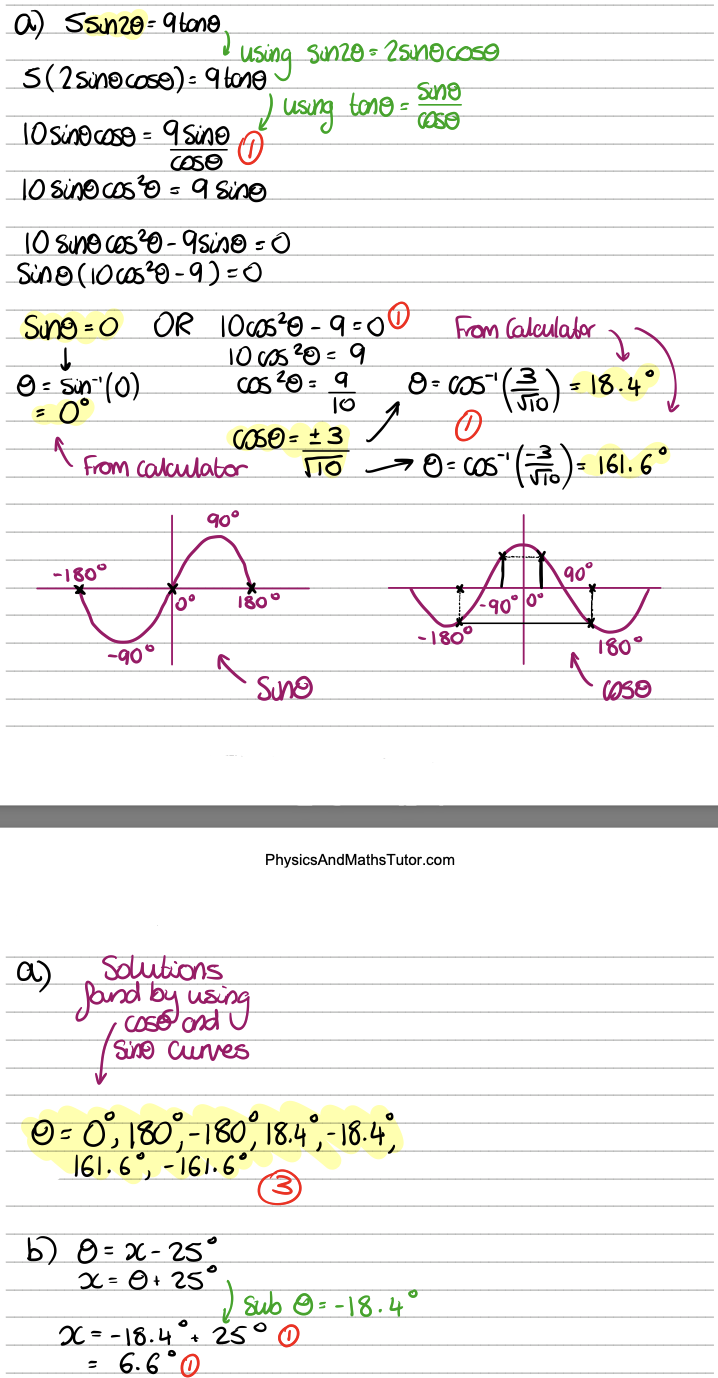 a) 5sin2θ = 9tanθ
using sin2θ = 2sinθcosθ
5(2sinθcosθ) = 9tanθ
using tanθ = sinθ/cosθ
10sinθcosθ = 9sinθ/cosθ ①
10sinθcos²θ = 9sinθ
10sinθcos²θ - 9sinθ = 0
sinθ(10cos²θ - 9) = 0
Sinθ = 0 OR 10cos²θ - 9 = 0 ① From Calculator
10cos²θ = 9
θ = sin⁻¹(0) cos²θ = 9/10 θ = cos⁻¹(3/√10) = 18.4°
= 0° ①
cosθ = ±3/√10 θ = cos⁻¹(-3/√10) = 161.6°
From calculator
90°
-180° 0° 180°
-90°
Sinθ
90°
-90° 0°
-180° 180°
cosθ
PhysicsAndMathsTutor.com
a) Solutions
found by using
cosθ and
sinθ curves
θ = 0°, 180°, -180°, 18.4°, -18.4°,
161.6°, -161.6°
③
b) θ = x - 25°
x = θ + 25°
sub θ = -18.4°
x = -18.4° + 25° ①
= 6.6° ①